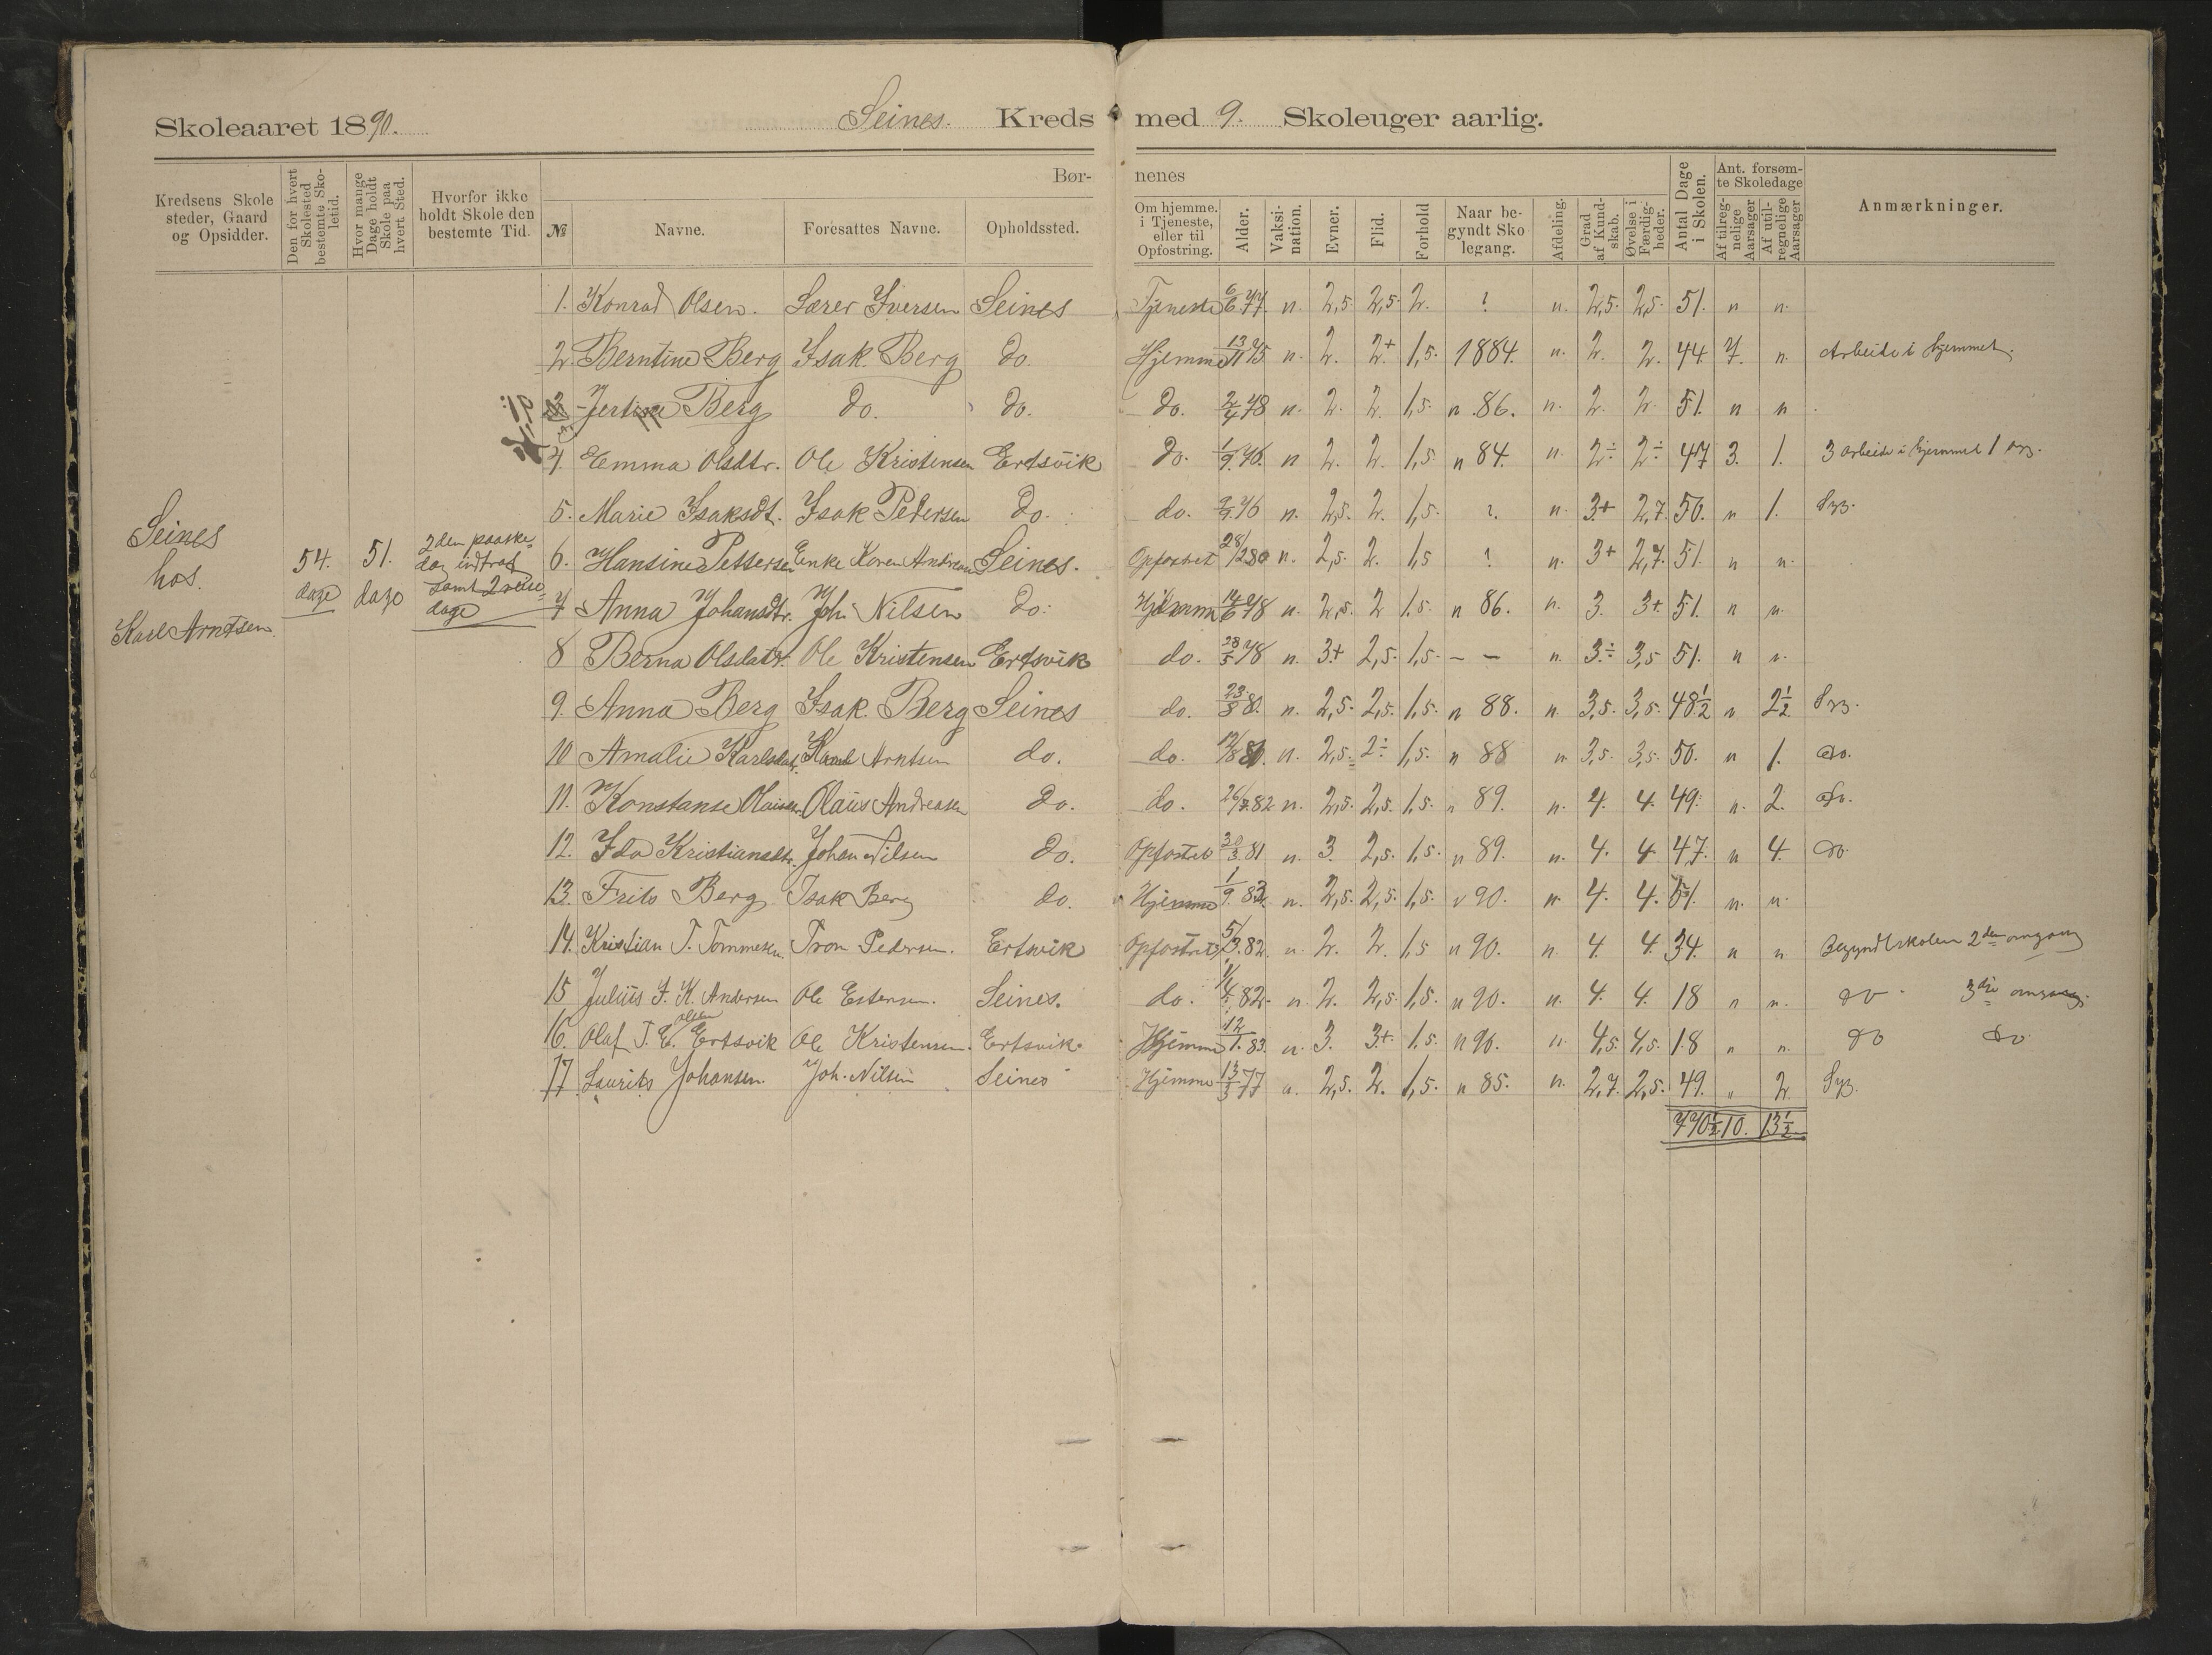 Skoleaaret 1890. Seines. Kreds med 9. Skoleuger aarlig.
Kredsens Skolesteder, Gaard og Opsidder. Den for hvert Skolested bestemte Skoletid. Hvor mange Dage holdt Skole paa hvert Sted. Hvorfor ikke holdt Skole den bestemte Tid. Børnenes
№ Navne. Foresattes Navne. Opholdssted. Om hjemme. i Tjeneste, eller til Opfostring. Alder. Vaksination. Evner. Flid. Forhold Naar begyndt Skolegang. Afdeling. Grad af Kundskab. Øvelse i Færdigheder. Antal Dage i Skolen. Ant. forsømte Skoledage Af tilregnelige Aarsager Af utilregnelige Aarsager Anmærkninger.
Seines
hos.
Karl Arntsen
54. dage
51. dage
2den paaske-
dag indtraf
samt 2 reise-
dage
1. Konrad Olsen. Lærer Iversen Seines Tjeneste 6/6 77. n. 2,5. 2,5. 2. ? n. 2,5. 2,5. 51. n n.
2. Berntine Berg Isak. Berg do. Hjemme 13/11 75 n. 2. 2+ 1,5. 1884. n. 2. 2. 44. 7. n. Arbeide i Hjemmet.
3 Berg do. do. do. 2/4 78 n. 2. 2. 1,5. n 86. n. 2. 2. 51. n n
4. Emma Olsdtr. Ole Kristensen Ertsvik do. 1/9 76. n 2. 2. 1,5 n 84. n. 2÷ 2÷ 47 3. 1. 3 arbeide i Hjemmet 1 syg.
5. Marie Isaksdt. Isak Pedersen do. do. 76 n. 2,5. 2. 1,5. ?. n. 3+ 2,7. 50. n 1. Syg.
6. Hansine Pettersen Enke Karen Andreas Seines. Opfostret 28/2 80 n. 2,5. 2. 1,5 ? n. 3+ 2,7. 51. n n.
7 Anna Johansdtr. Joh. Nilsen do. Hjemme 14/6 78 n. 2,5. 2 1,5. n 86. n. 3. 3+ 51. n n.
8 Berna Olsdatr. Ole Kristensen Ertsvik do. 28/5 78 n. 3+ 2,5. 1,5. – – n. 3÷ 3,5 51. n n.
9. Anna Berg Isak. Berg Seines do. 23/5 80. n. 2,5. 2,5. 1,5. n 88. n. 3,5. 3,5. 48½ n 2½ Syg.
10 Amalie Karlsdat. Karl Arntsen do. do. 12/8 80. n. 2,5. 2÷ 1,5. n 88 n. 3,5. 3,5. 50. n 1. do.
11. Konstanse Olausen Olaus Andreasen do. do. 26/7 82 n. 2,5. 2,5. 1,5. n 89. n. 4. 4. 49. n. 2. do.
12. Ida Kristiansdtr. Johan Nilsen do. Opfostret 30/3 81 n. 3. 2,5. 1,5. n 89. n. 4. 4 47. n 4. do.
13. Frits Berg Isak Berg do. Hjemme 1/9 83. n. 2,5. 2,5. 1,5. n 90. n. 4. 4. 51. n. n.
14. Kristian T. Tommesen. Tron Pedersen. Ertsvik Opfostret 5/3 82. n. 2. 2. 1,5 n 90. n. 4. 4. 34. n n Begyndt skolen 2den omgang
15 Julius J. K. Andersen Ole Estensen. Seines. do. 1/4 82. n. 2. 2,5. 1,5. n 90. n. 4. 4. 18 n n. do 3die omgang.
16. Olaf J. E. Olsen Ertsvik Ole Kristensen. Ertsvik. Hjemme 12/1 83. n. 3. 3+. 1,5. n 90. n. 4,5. 4,5. 18 n n. do do
17. Laurits Johansen. Joh. Nilsen Seines Hjemme 13/3 77 n. 2,5. 2. 1,5. n 85. n. 2,7. 2,5. 49. " 2. Syg.
770½ 10. 13½